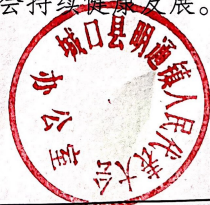 会持续健康发展。
城口县明通镇人民代表大会
办公室